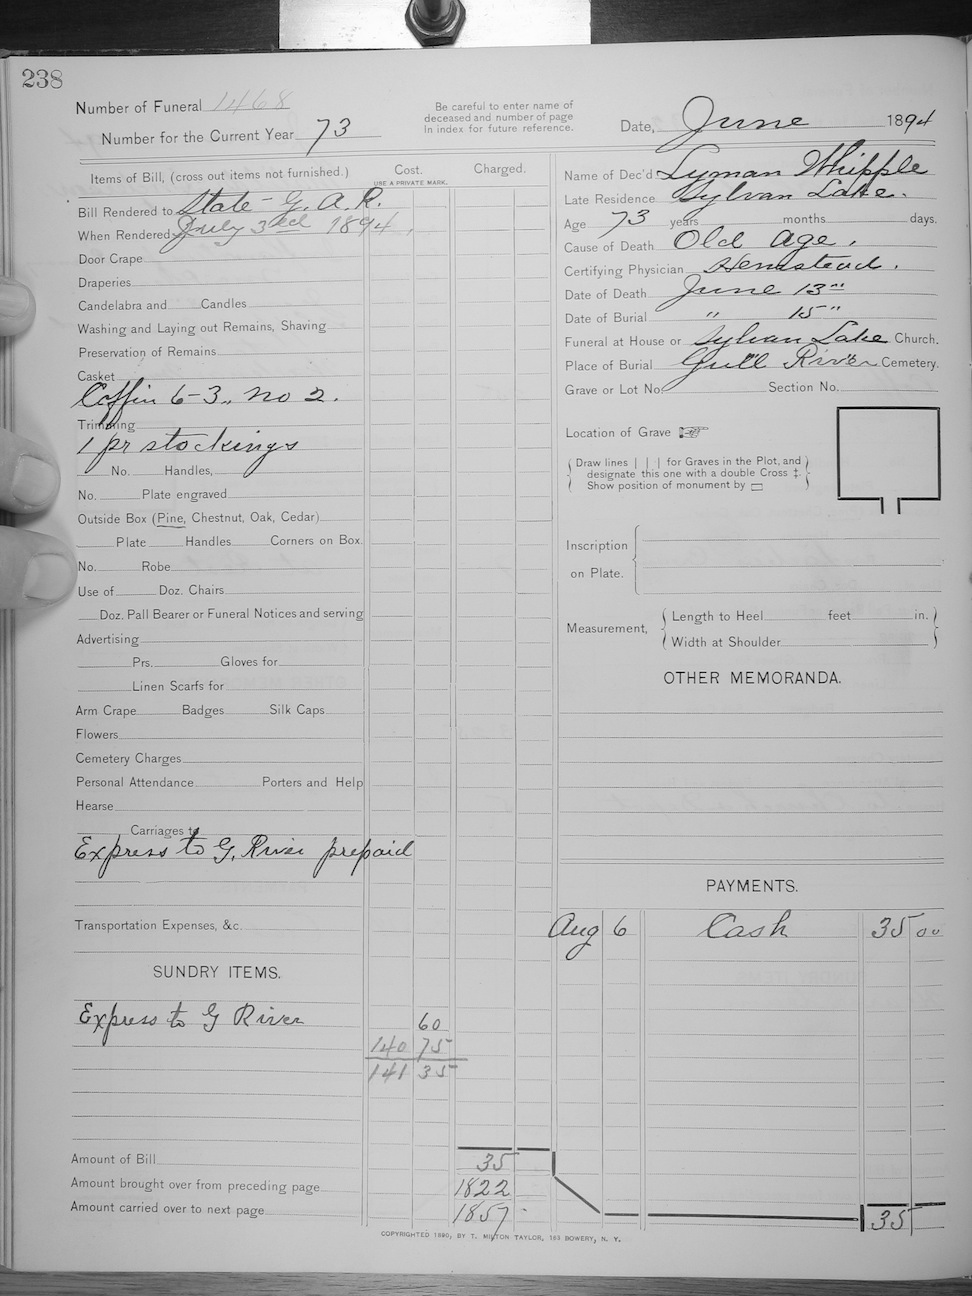 238
Number of Funeral 1468
Number for the Current Year 73
Be careful to enter name of
deceased and number of page
In index for future reference.
Date, June 1894
Items of Bill, (cross out items not furnished.)
Cost.
USE A PRIVATE MARK.
Charged.
Bill Rendered to State - G. A. R.
When Rendered July 3rd 1894.
Door Crape
Draperies
Candelabra and Candles
Washing and Laying out Remains, Shaving
Preservation of Remains
Casket
Coffin 6-3., no 2.
Trimming
1 pr stockings
No. Handles,
No. Plate engraved
Outside Box (Pine, Chestnut, Oak, Cedar)
Plate Handles Corners on Box.
No. Robe
Use of Doz. Chairs
Doz. Pall Bearer or Funeral Notices and serving
Advertising
Prs. Gloves for
Linen Scarfs for
Arm Crape Badges Silk Caps
Flowers
Cemetery Charges
Personal Attendance Porters and Help
Hearse
Carriages to
Express to G. River prepaid
Transportation Expenses, &c.
SUNDRY ITEMS.
Express to G River 60
140 75
141 35
Amount of Bill 35
Amount brought over from preceding page 1822
Amount carried over to next page 1857 -
Name of Dec'd Lyman Whipple
Late Residence Sylvan Lake.
Age 73 years months days.
Cause of Death Old Age.
Certifying Physician Hemstead.
Date of Death June 13"
Date of Burial " 15"
Funeral at House or Sylvan Lake Church.
Place of Burial Gull River Cemetery.
Grave or Lot No. Section No.
Location of Grave ☞
Draw lines | | | for Graves in the Plot, and
designate this one with a double Cross ‡.
Show position of monument by ▭
Inscription
on Plate.
Measurement,
Length to Heel feet in.
Width at Shoulder
OTHER MEMORANDA.
PAYMENTS.
Aug 6 Cash 35 00
35
COPYRIGHTED 1890, BY T. MILTON TAYLOR, 163 BOWERY, N. Y.